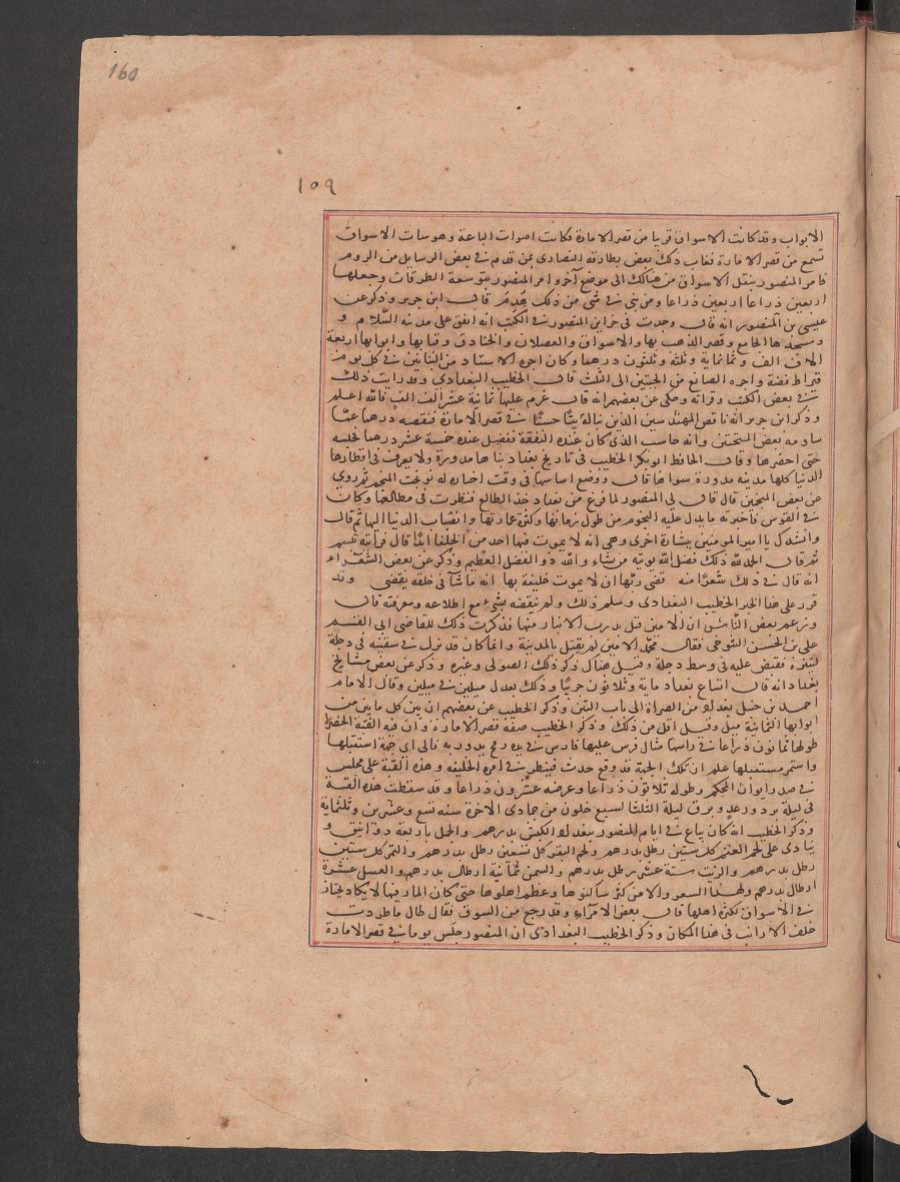 160
109
الابواب وقد كانت الاسواق قريبا من قصر الامارة فكانت اصوات الباعة وهوسات الاسواق
تسمع من قصر الامارة فعاب ذلك بعض بطارقة النصارى ممن قدم في بعض الرسايل من الروم
فامر المنصور بنقل الاسواق من هنالك الى موضع آخر وامر المنصور بتوسعة الطرقات وجعلها
اربعين ذراعا اربعين ذراعا ومن بنى في شى من ذلك هدم قال ابن جرير وذكر عن
عيسى بن المنصور انه قال وجدت فى خزاين المنصور في الكتب انه انفق على مدينه السلام و
ومسجدها الجامع وقصر الذهب بها والاسواق والفصلان والخنادق وقبابها وابوابها اربعة
الاف الف وثمانماية وثلثة وثلثون درهما وكان اجره الاستاد من البنائين في كل يوم
قيراط فضة واجره الصانع من الحبتين الى الثلث قال الخطيب البغدادى وقد رايت ذلك
في بعض الكتب وقراته وحكى عن بعضهم انه قال غرم عليها ثمانية عشر الف الف فالله اعلم
وذكر ابن جرير انه ناقص المهندسين الذين بنى له بيتا حسنا في قصر الامارة فنقصه درهما عما
ساومه بعض المستحثين وانه حاسب الذى كان عنده النفقة ففضل عنده خمسة عشر درهما فحبسه
حتى احضرها وقال الحافظ ابو بكر الخطيب فى تاريخ بغداد بناها مدورة ولا يعرف فى اقطار
الدنيا كلها مدينه مدورة سواها قال ووضع اساسها فى وقت اختاره له نوبخت المنجم ثم روى
عن بعض المنجمين قال قال لى المنصور لما فرغ من بغداد خذ الطالع فنظرت فى مطالعها وكان
في القوس فاخبرته ما يدل عليه النجوم من طول زمانها وكثرة عمارتها وانصباب الدنيا اليها ثم قال
وابشرك يا امير المومنين ببشارة اخرى وهى انه لا يموت فيها احد من الخلفا ابدا قال فرايته تبسم
ثم قال الحمد لله ذلك فضل الله يوتيه من يشاء والله ذو الفضل العظيم وذكر عن بعض الشعراء
انه قال في ذلك شعرا منه قضى ربها ان لا يموت خليفة بها انه ما شا فى خلقه يقضى وقد
قرر على هذا الخبر الخطيب البغدادى وسلم ذلك ولم ينقضه بشىء مع اطلاعه ومعرفته قال
وزعم بعض الناس ان الامين قتل بدرب الانبار منها فذكرت ذلك للقاضى ابى القسم
على بن الحسن التنوخى فقال محمد الامين لم يقتل بالمدينة وانما كان قد نزل في سفينه فى دجلة
ليتنزه فقبض عليه فى وسط دجلة وقتل هناك ذكر ذلك الصولى وغيره وذكر عن بعض مشايخ
بغداد انه قال اتساع بغداد ماية وثلاثون جريبا وذلك يعدل ميلين في ميلين وقال الامام
احمد بن حنبل بغداد من الصراة الى باب التبن وذكر الخطيب عن بعضهم ان بين كل مابين من
ابوابها الثمانية ميل وقيل اقل من ذلك وذكر الخطيب صفة قصر الامارة وان فيه القبة الخضرا
طولها ثمانون ذراعا في راسها مثال فرس عليها فارس في يده رمح يدور به فالى اى جهة استقبلها
واستمر مستقبلها علم ان تلك الجهة قد وقع حدث فينظر في امره الخليفه وهذه القبة على مجلس
في صدر ايوان المحكم وطوله ثلاثون ذراعا وعرضه عشرون ذراعا وقد سقطت هذه القبة
فى ليلة برد ورعد وبرق ليلة الثلثا لسبع خلون من جمادى الاخرة سنه تسع وعشرين وثلثماية
وذكر الخطيب انه كان يباع في ايام المنصور ببغداد الكبش بدرهم والحمل باربعة دوانيق و
ينادى على لحم الغنم كل ستين رطل بدرهم ولحم البقر كل تسعين رطل بدرهم والتمر كل ستين
رطل بدرهم والزيت ستة عشر رطل بدرهم والسمن ثمانية ارطال بدرهم والعسل عشرة
ارطال بدرهم ولهذا السعر والامن كثر ساكنوها وعظم اهلوها حتى كان المار فيها لا يكاد يجتاز
في الاسواق لكثرة اهلها قال بعض الامراء وقد رجع من السوق فقال طال ما طردت
خلف الارانب فى هذا المكان وذكر الخطيب البغدادى ان المنصور جلس يوما في قصر الامارة